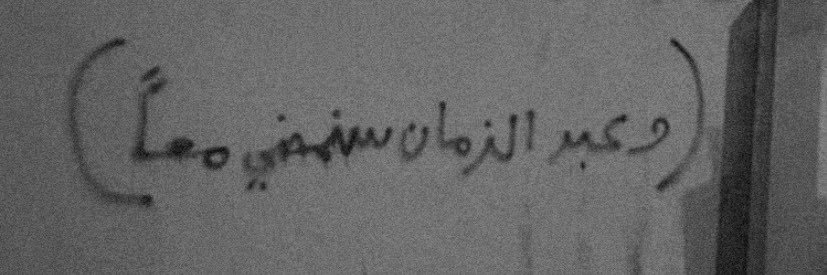 (وعبر الزمان سنمضي معاً)